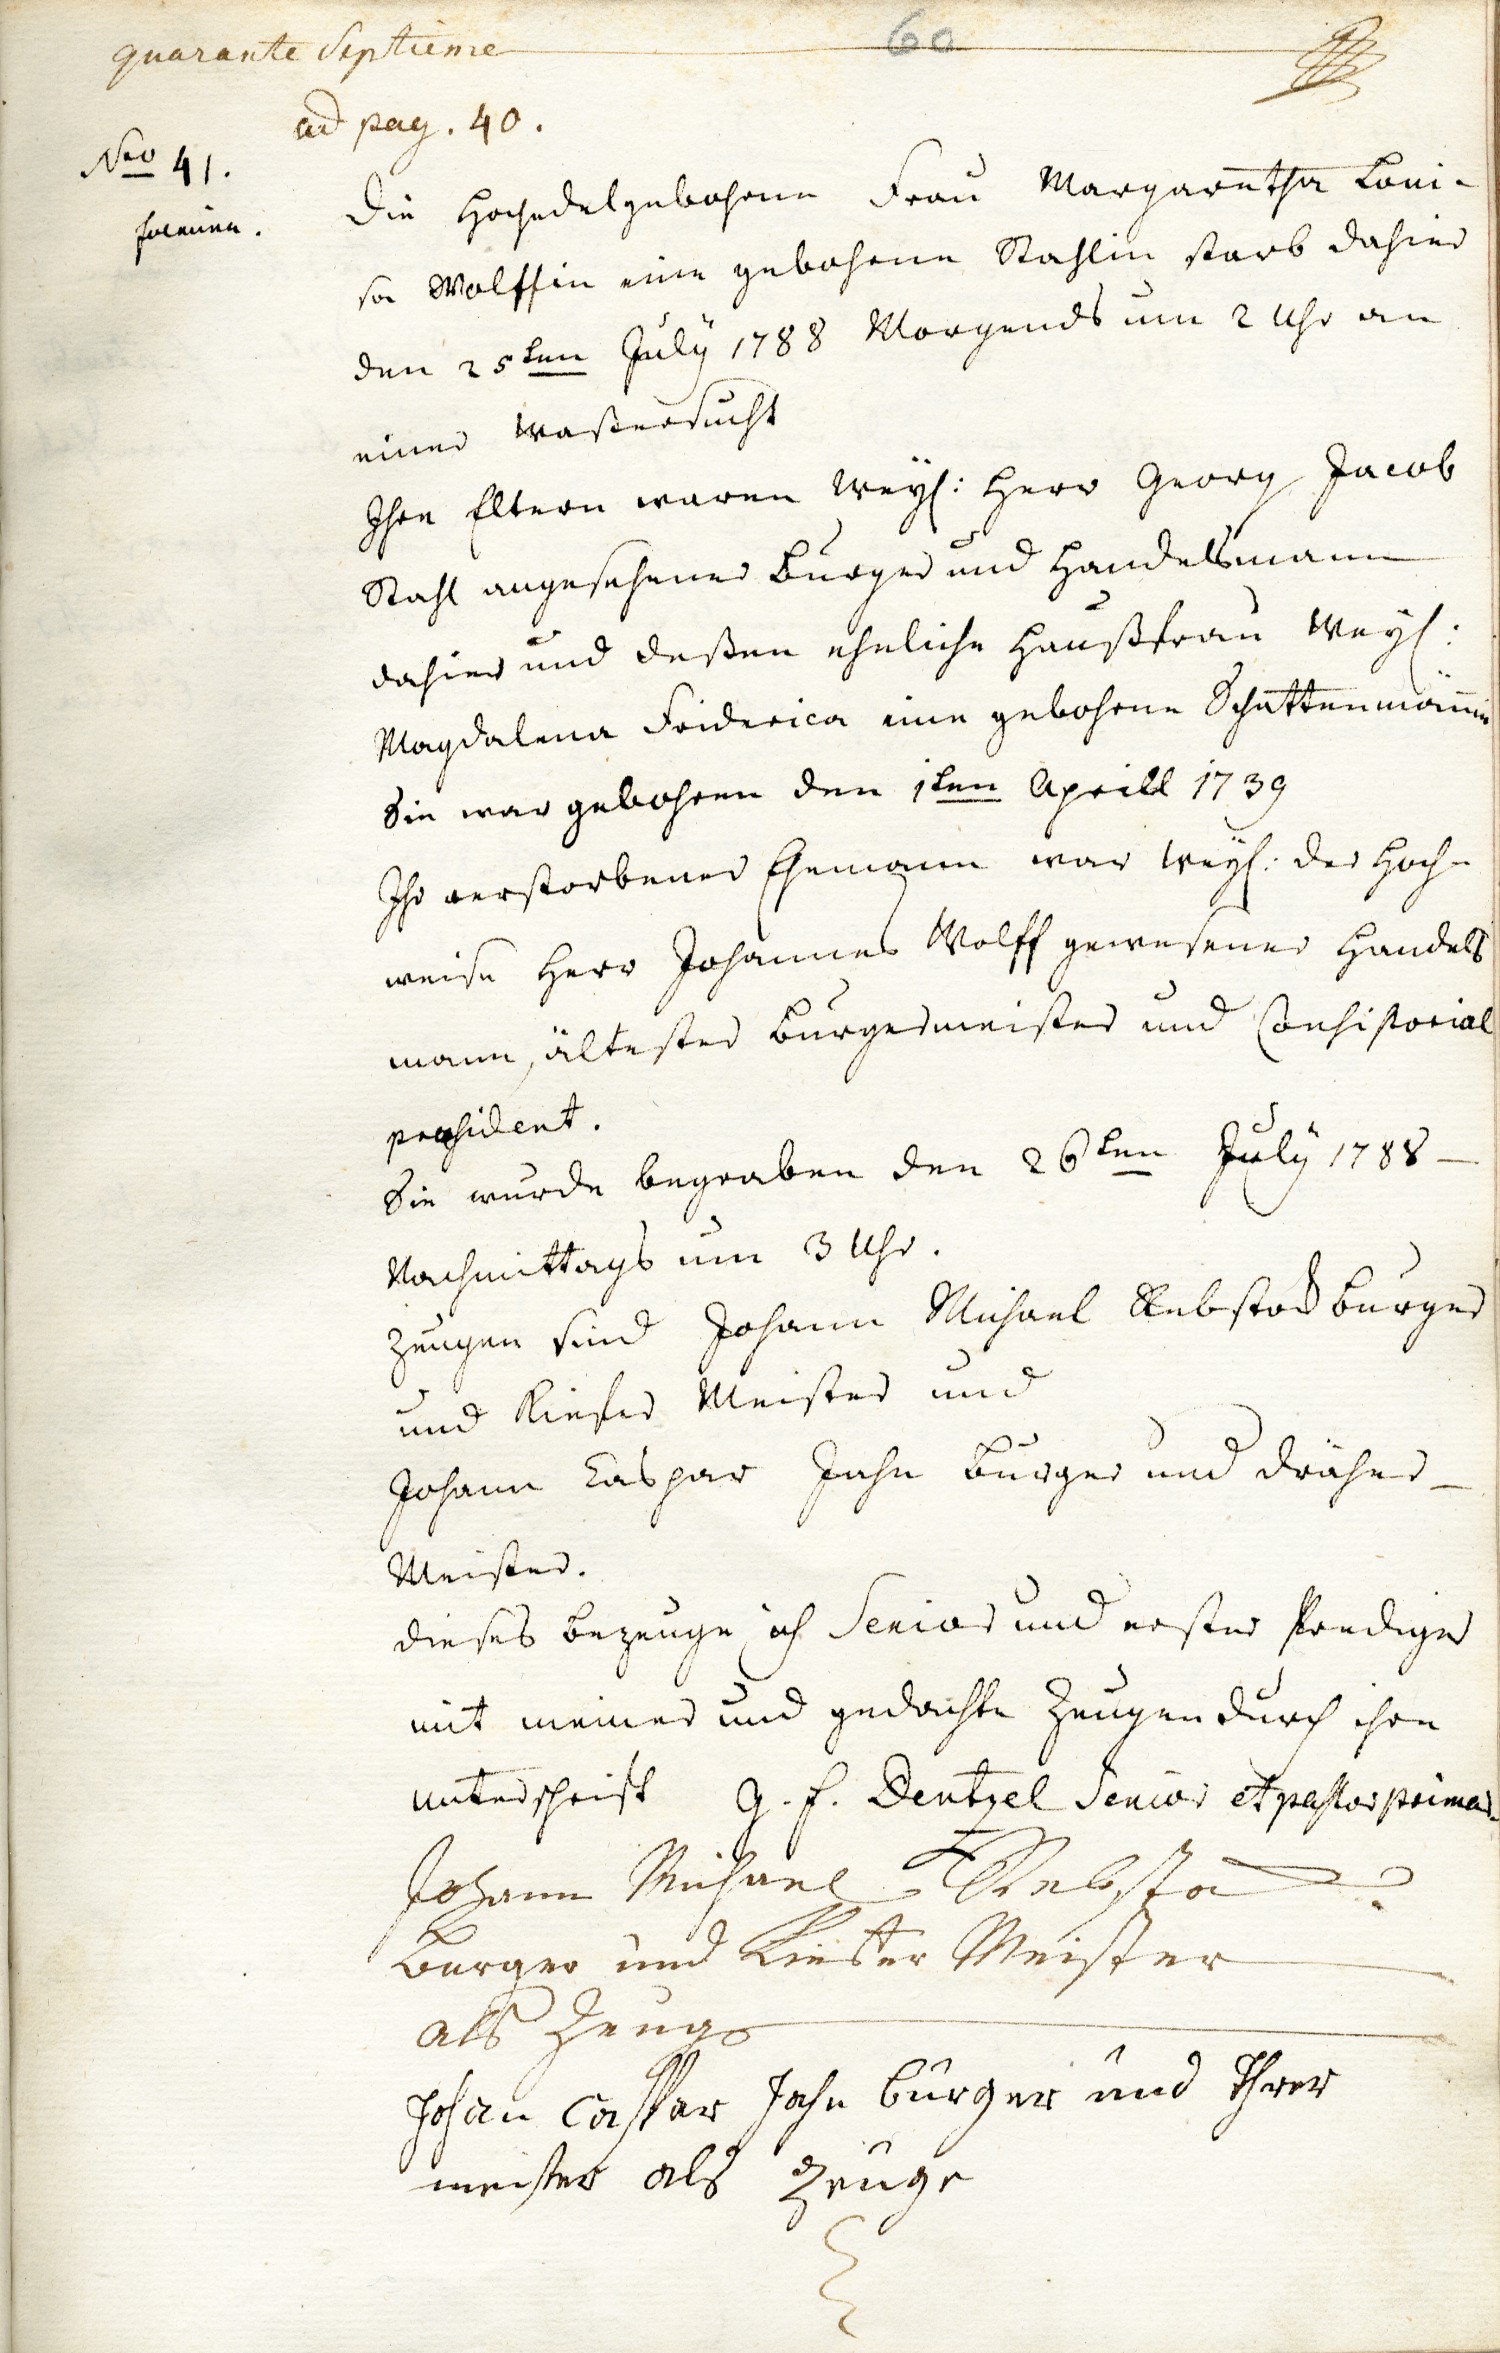 quarante Septieme
60
ad pag. 40.
Nro 41.
foemin.
Die Hochedelgebohrne Frau Margaretha Loui-
sa Wolffin eine gebohrne Stahlin starb dahier
den 25ten July 1788 Morgends um 2 Uhr an
einer Waßersucht
Ihre Eltern waren Weyl: Herr Georg Jacob
Stahl angesehener Burger und Handelsmann
dahier und deßen eheliche Haußfrau Weyl:
Magdalena Friderica eine gebohrne Schattenmännin
Sie war gebohren den 1ten Aprill 1739
Ihr verstorbener Ehemann war Weyl: der Hoch-
weise Herr Johannes Wolff gewesener Handels
mann, ältester Burgermeister und Consistorial
praesident.
Sie wurde begraben den 26ten July 1788
Nachmittags um 3 Uhr.
Zeugen sind Johann Michael Rebstock Burger
und Kiefer Meister und
Johann Caspar Jahn Burger und Dräher
Meister.
dieses bezeuge ich Senior und erster Prediger
mit meiner und gedachte Zeugen durch ihre
Unterschrift G. F. Dentzel Senior et pastor primar.
Johann Michael Rebstock
Burger und Kiefer Meister
als Zeug
Johan Caspar Jahn bürger und Threr
meister als Zeuge